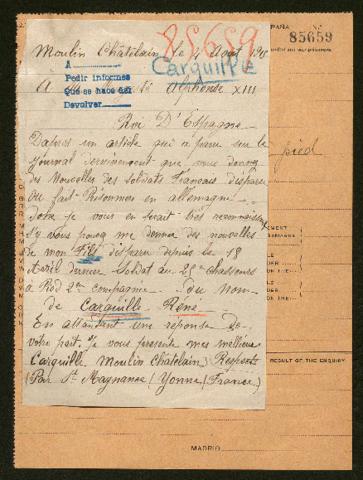 85659
Moulin Châtelain le 4 Août 19
Carquille
A Sa Majesté Alphonse XIII
A
Pedir informes
Que se hace
Devolver
Roi D'Espagne
Dapres un article qui a paru sur le
Journal que vous donnez
des Nouvelles des soldats Français disparu
Ou fait Prisonnier en allemagne
je vous en serait très reconnaissant
s'y vous pouvez me donner des nouvelles
de mon Fils disparu depuis le 18
Avril dernier Soldat au 28e chasseurs
à Pied 2me compagnie du nom
de Carquille René
En attendant une réponse de
votre part. Je vous présente mes meilleurs
Carquille Moulin Châtelain) Respects
(Par St Magnance (Yonne (France)
ESPAÑA
No
85659
pied
RESULT OF THE ENQUIRY
MADRID